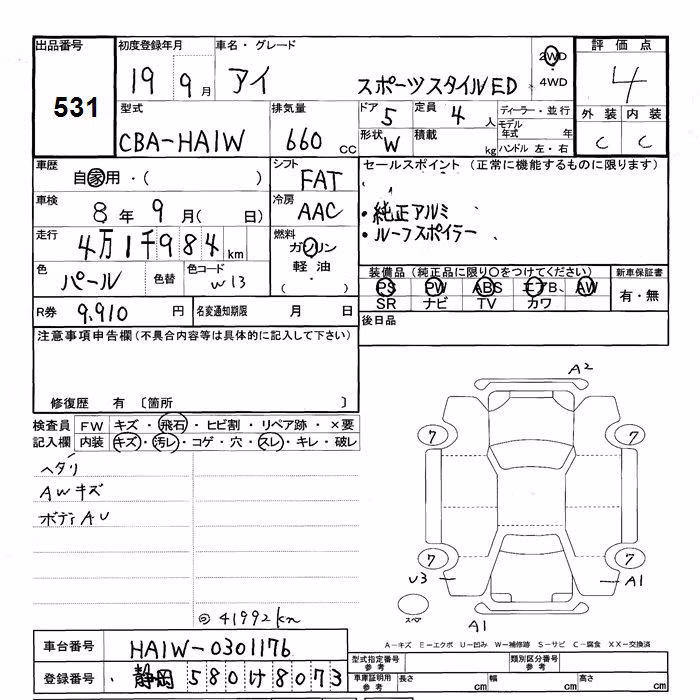 出品番号 初度登録年月 車名・グレード 評価点
531 19 9月 アイ スポーツスタイルED 2WD・4WD 4
型式 排気量 ドア 5 定員 4人 ディーラー・並行 外装 内装
CBA-HA1W 660cc 形状 W 積載 kg モデル年式 年 C C
ハンドル 左・右
車歴 自家用・( ) シフト FAT セールスポイント (正常に機能するものに限ります)
車検 8年 9月( 日) 冷房 AAC ・純正アルミ
走行 4万1千984km 燃料 ガソリン ・ルーフスポイラー
軽油
・( )
色 パール 色替 色コード W13 装備品 (純正品に限り○をつけてください) 新車保証書
PS PW ABS エアB、 AW 有・無
SR ナビ TV カワ
R券 9,910円 名変通知期限 月 日 後日品
注意事項申告欄(不具合内容等は具体的に記入して下さい)
修復歴 有 〔箇所 〕
検査員 FW キズ・飛石・ヒビ割・リペア跡・×要
記入欄 内装 キズ・汚レ・コゲ・穴・スレ・キレ・破レ
ヘタリ
AWキズ
ボディAU
◎41992km
A2
7 7
7 7
U3 A1
スペア
A1
A-キズ E-エクボ U-凹み W-補修跡 S-サビ C-腐食 XX-交換済
車台番号 HA1W-0301176
型式指定番号 参考 類別区分番号 参考
登録番号 静岡580け8073
車庫証明用 参考 長さ cm 幅 cm 高さ cm